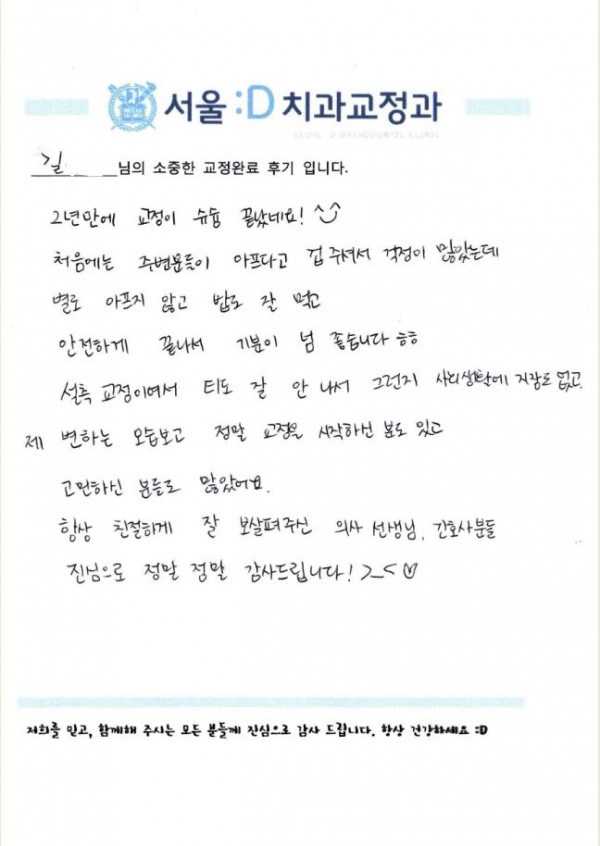 서울 :D 치과교정과
SEOUL :D ORTHODONTIC CLINIC
길 님의 소중한 교정완료 후기 입니다.
2년만에 교정이 슈슝 끝났네요! ^^
처음에는 주변분들이 아프다고 겁 주셔서 걱정이 많았는데
별로 아프지 않고 밥도 잘 먹고
안전하게 끝나서 기분이 넘 좋습니다 ㅎㅎ
설측 교정이여서 티도 잘 안 나서 그런지 사회생활에 지장도 없고,
제 변하는 모습보고 정말 교정을 시작하신 분도 있고
고민하신 분들도 많았어요.
항상 친절하게 잘 보살펴주신 의사 선생님, 간호사분들
진심으로 정말 정말 감사드립니다! >_< ♡
저희를 믿고, 함께해 주시는 모든 분들께 진심으로 감사 드립니다. 항상 건강하세요 :D